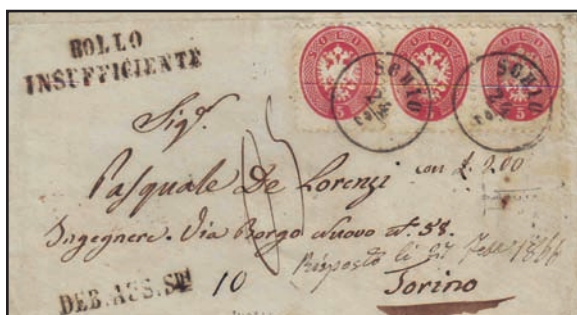 BOLLO
INSUFFICIENTE
SOLDI SOLDI SOLDI
5 5 5
SCHIO SCHIO
24 24
Sigr.
Pasquale De Lorenzi con £ 2.00
Ingegnere. Via Borgo Nuovo N° 58.
Risposto li 27 1866
DEB. AUS. SDI 10
Torino